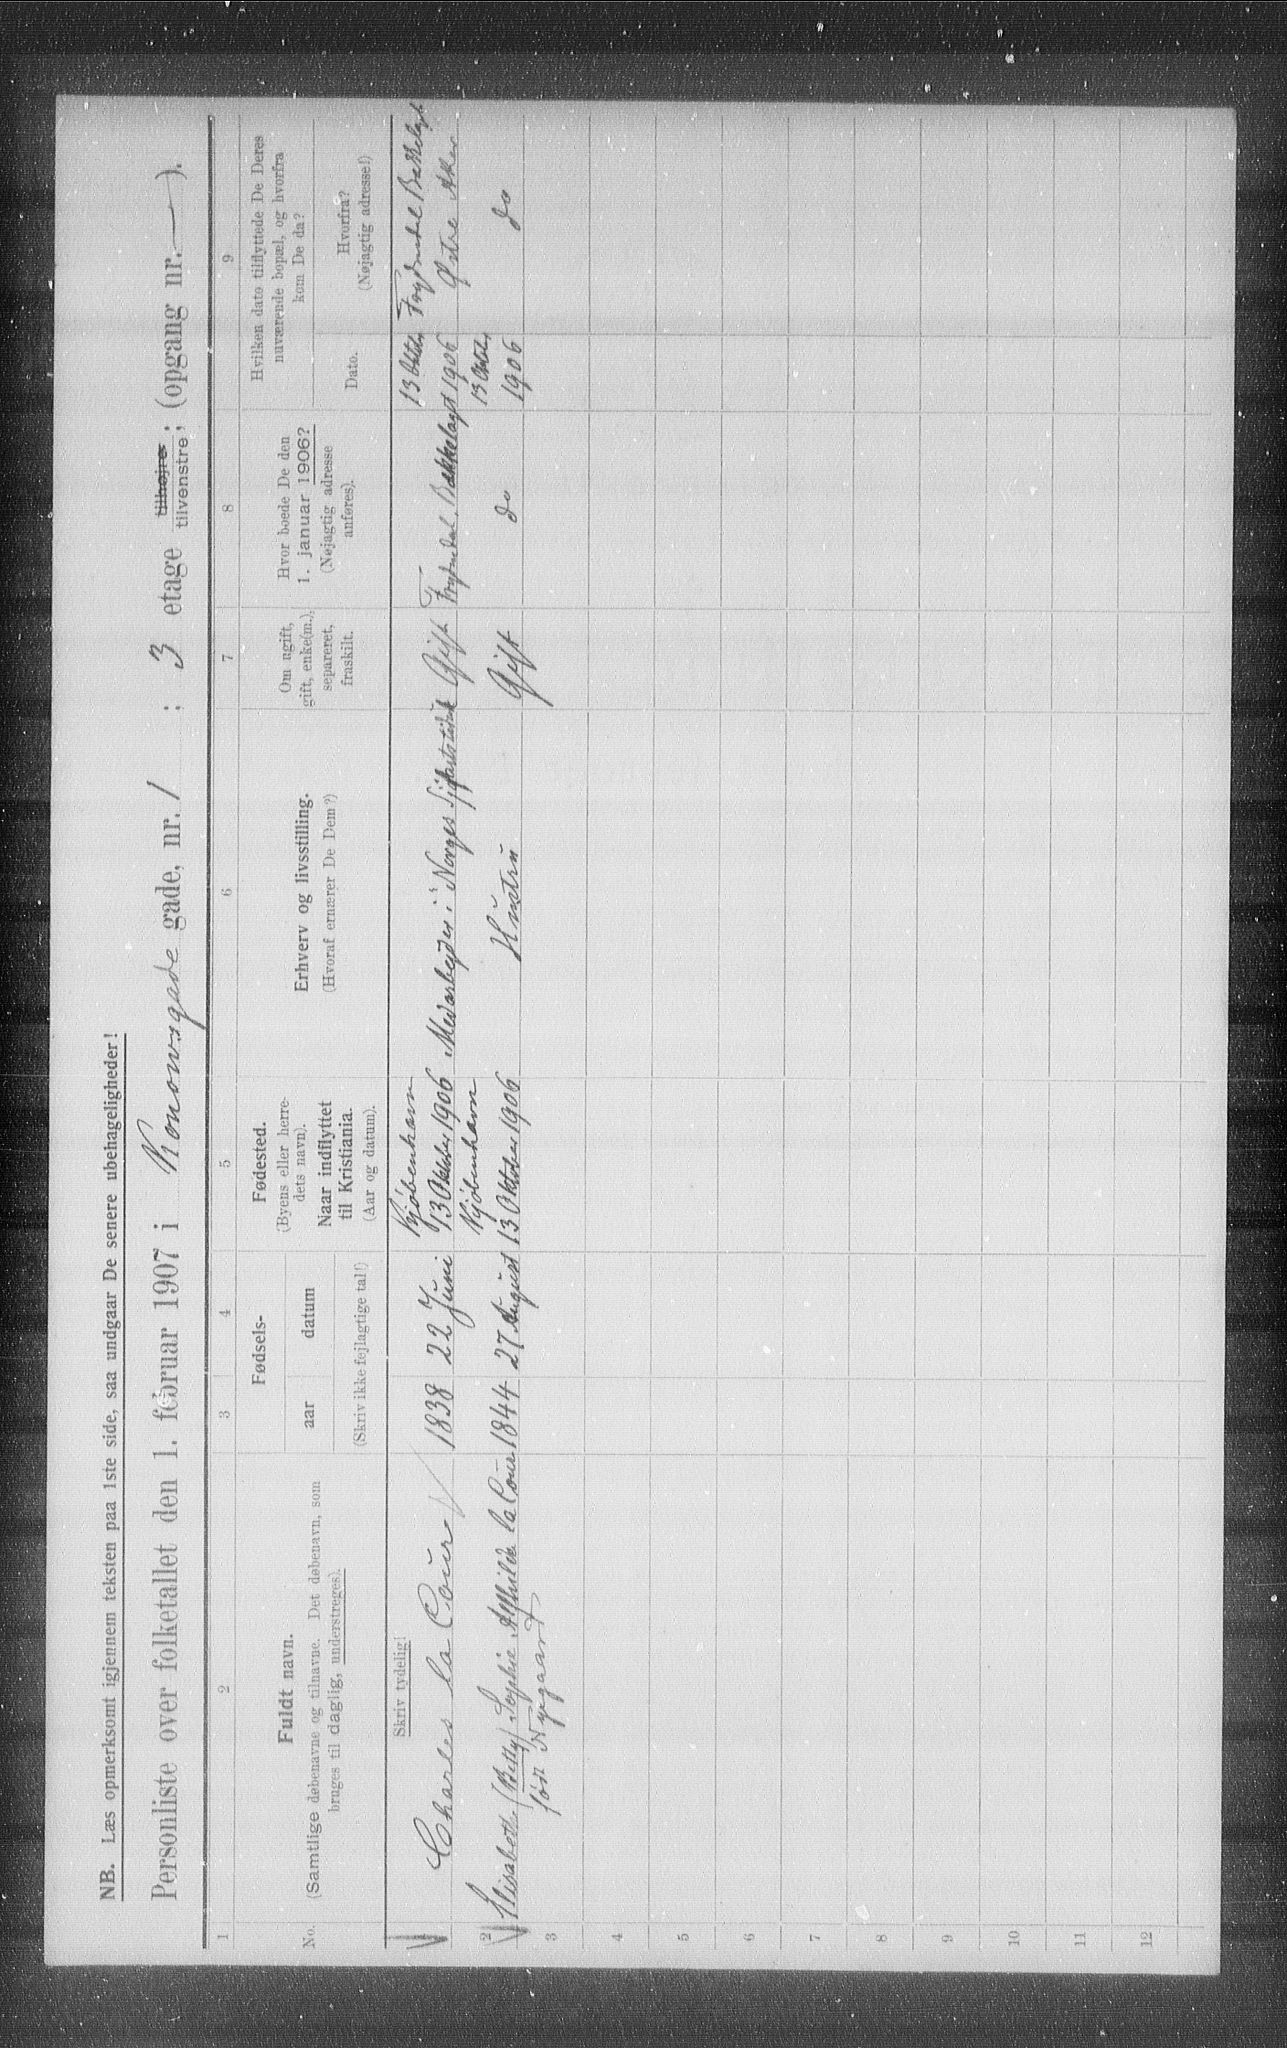 NB. Læs opmerksomt igjennem teksten paa 1ste side, saa undgaar De senere ubehageligheder!
Personliste over folketallet den 1. februar 1907 i Konowsgade gade, nr. 1 ; 3 etage tilhøjre tilvenstre; (opgang nr. — ).
1 2 3 4 5 6 7 8 9
No.
Fuldt navn.
(Samtlige døbenavne og tilnavne. Det døbenavn, som
bruges til daglig, understreges).
Fødsels-
aar datum
(Skriv ikke fejlagtige tal!)
Fødested.
(Byens eller herre-
dets navn).
Naar indflyttet
til Kristiania.
(Aar og datum).
Erhverv og livsstilling.
(Hvoraf ernærer De Dem?)
Om ugift,
gift, enke(m.),
separeret,
fraskilt.
Hvor boede De den
1. januar 1906?
(Nøjagtig adresse
anføres).
Hvilken dato tilflyttede De Deres
nuværende bopæl, og hvorfra
kom De da?
Dato.
Hvorfra?
(Nøjagtig adresse!)
Skriv tydelig!
1 Charles la Cour 1838 22 Juni Kjøbenhavn
13 Oktober 1906 Medarbejder i "Norges Sjøfartstidende Gift Frydendal, Bækkelaget 13 Oktober
1906 Frydendal Bækkelaget
Østre Aker
2 Elisabeth (Betty) Sophie Alfhilda la Cour 1844 27 August Kjøbenhavn
13 Oktober 1906 Hustru Gift do 13 Oktober
1906 do
født Nygaard
3
4
5
6
7
8
9
10
11
12